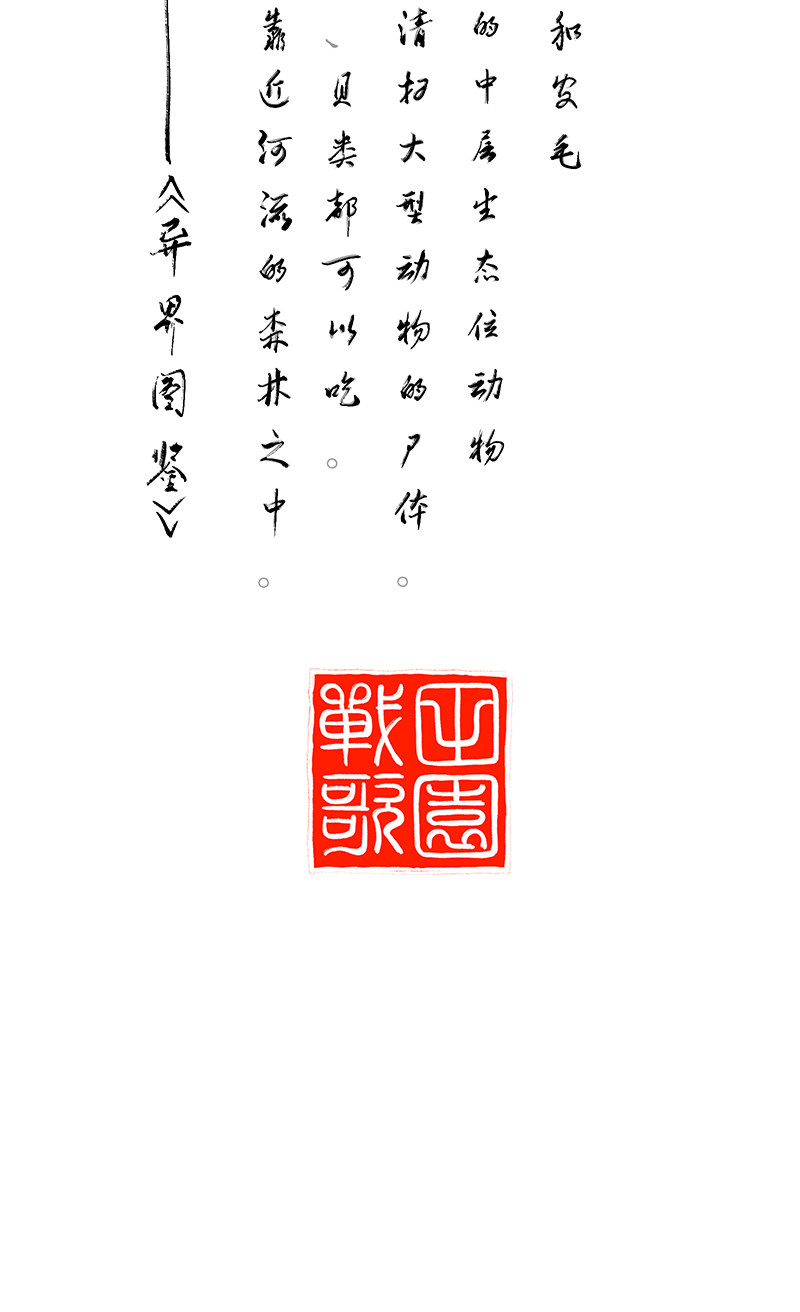 和皮毛
的中层生态位动物
清扫大型动物的尸体。
、贝类都可以吃。
靠近河流的森林之中。
——《异界图鉴》
戰歌